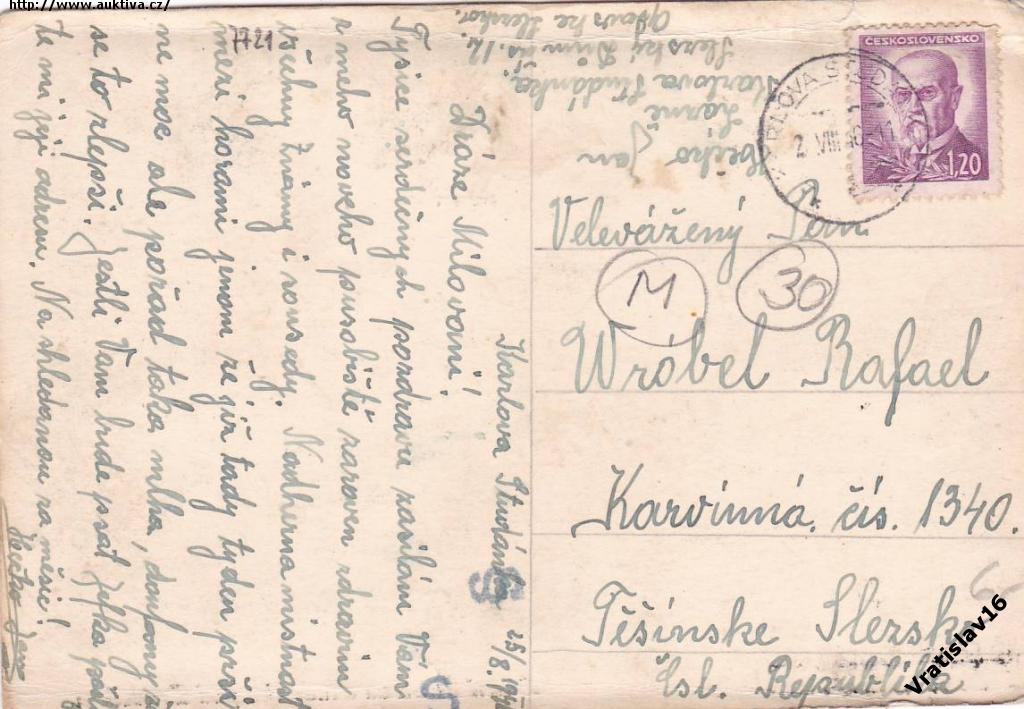 http://www.auktiva.cz/
7721
Karlova Studánka
Dráze Milovaní!
Tysice serdečnych pozdravu zasílám Vam
z meho noveho pusobiště zaroven zdravim
všechny Známy i sousedy. Nadherna mistnost
mezi horami jenom že jsř tady tyden prši
ne moc ale pořad taka mlha, doufam
se to zlepši. Jestli Vam bude psat Zefka
te mi jeji adresu. Na shledanou za měsic!
Hečko Jan
Hečko Jan
Lázně
Karlova Studánka
Slezský Dům čis. 12.
Opavske Slezsko.
ČESKOSLOVENSKO
1,20
KARLOVA STUD
2. VIII. 46-17
Velevážený Pan
M
30
Wróbel Rafael
Karvinná. čís. 1340.
Těšínske Slezsko
Čsl. Republika
Vratislav16